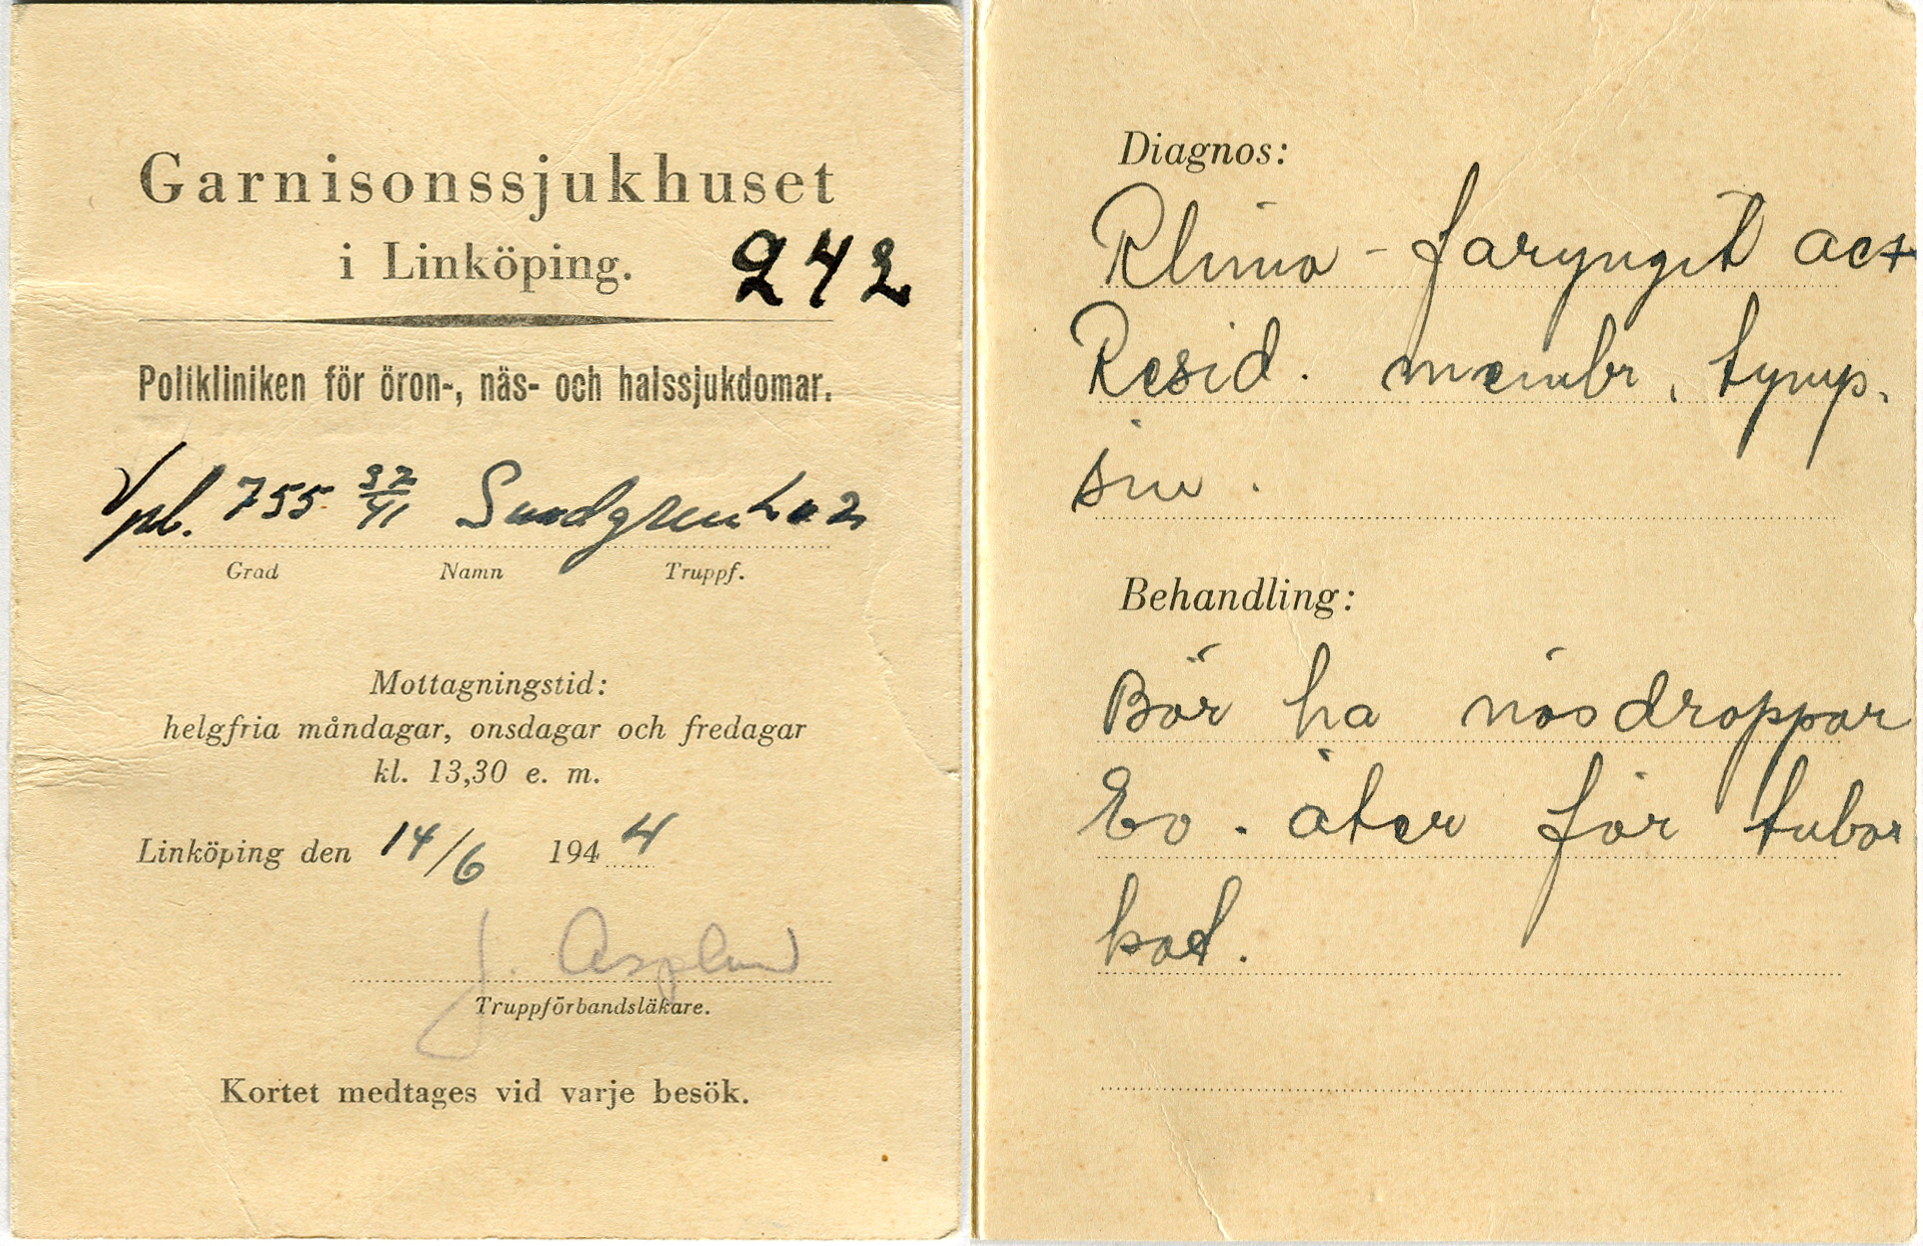 Garnisonssjukhuset
i Linköping. 242
Polikliniken för öron-, näs- och halssjukdomar.
Vpl. 755 37/41 Sundgren
Grad Namn Truppf.
Mottagningstid:
helgfria måndagar, onsdagar och fredagar
kl. 13,30 e. m.
Linköping den 14/6 1944
J. Asplund
Truppförbandsläkare.
Kortet medtages vid varje besök.
Diagnos:
Rhino-faryngit act
Resid. membr. tymp.
sin.
Behandling:
Bör ha näsdroppar
Ev. åter för tubar
kat.